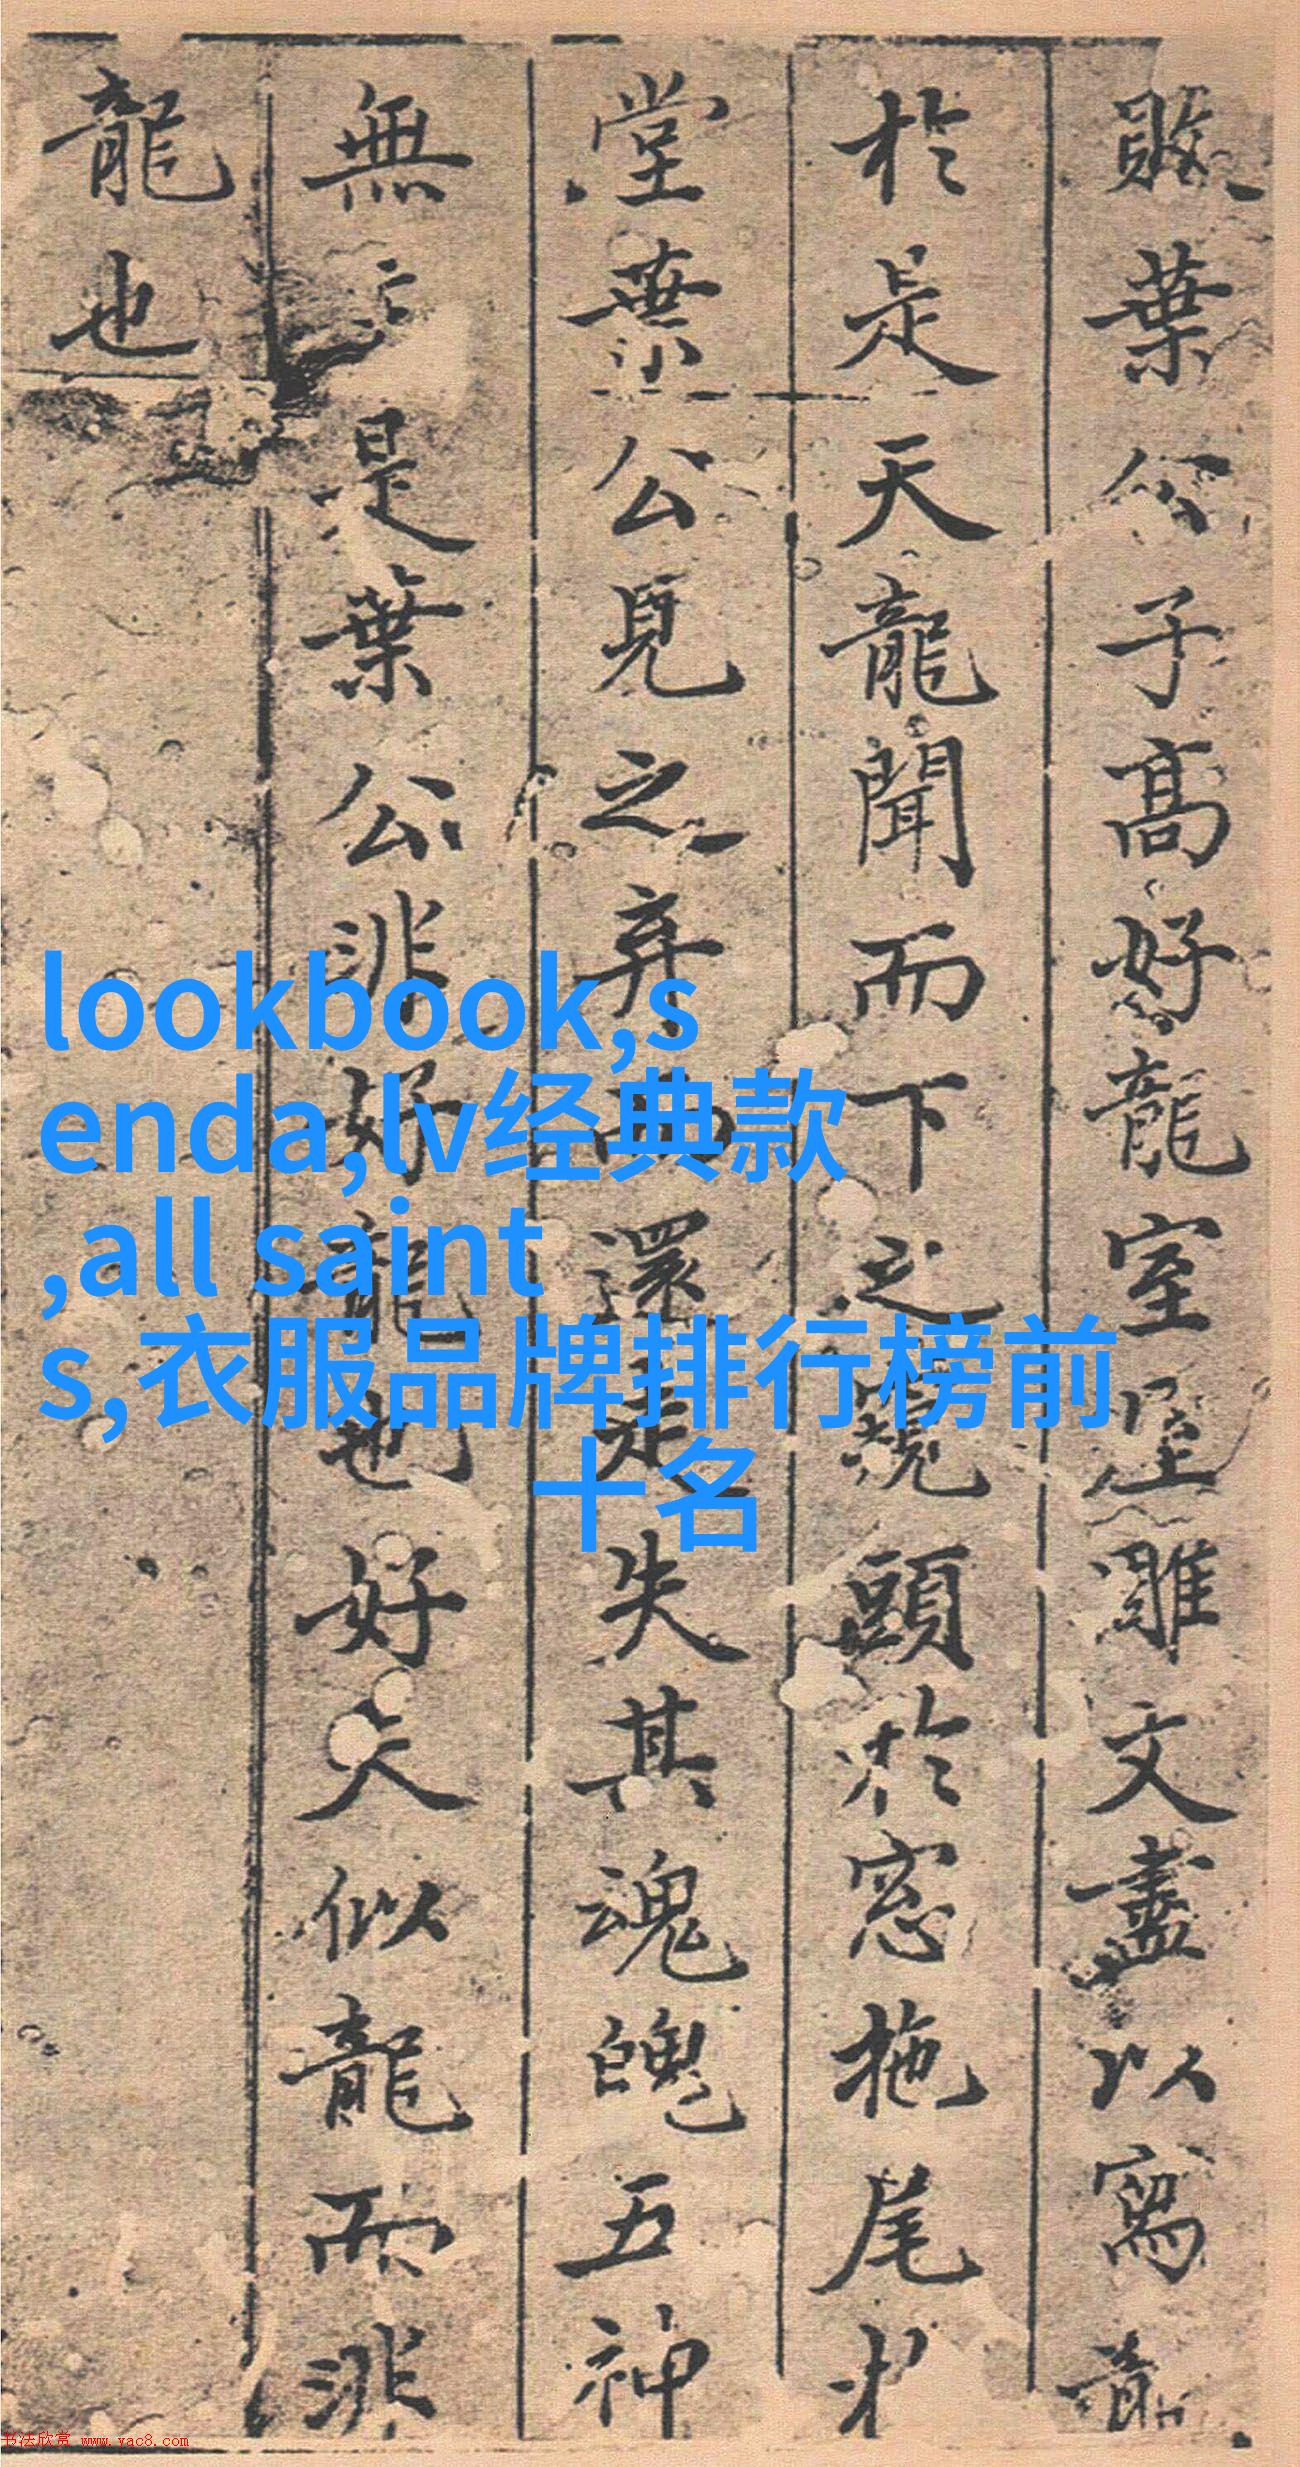 敗葉公子高好龍室屋雕文盡以寫龍
於是天龍聞而下之窺頭於窓拖尾於
堂葉公見之弃而還走失其魂魄五神
無是葉公非好龍也好夫似龍而非
龍也
lookbook,s
enda,lv经典款
,all saint
s,衣服品牌排行榜前
十名
书法欣赏 www.yac8.com